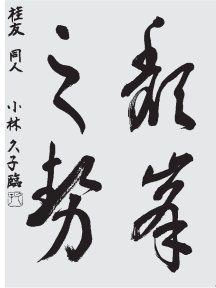 頽峯
之勢
桂友 同人 小林久子臨